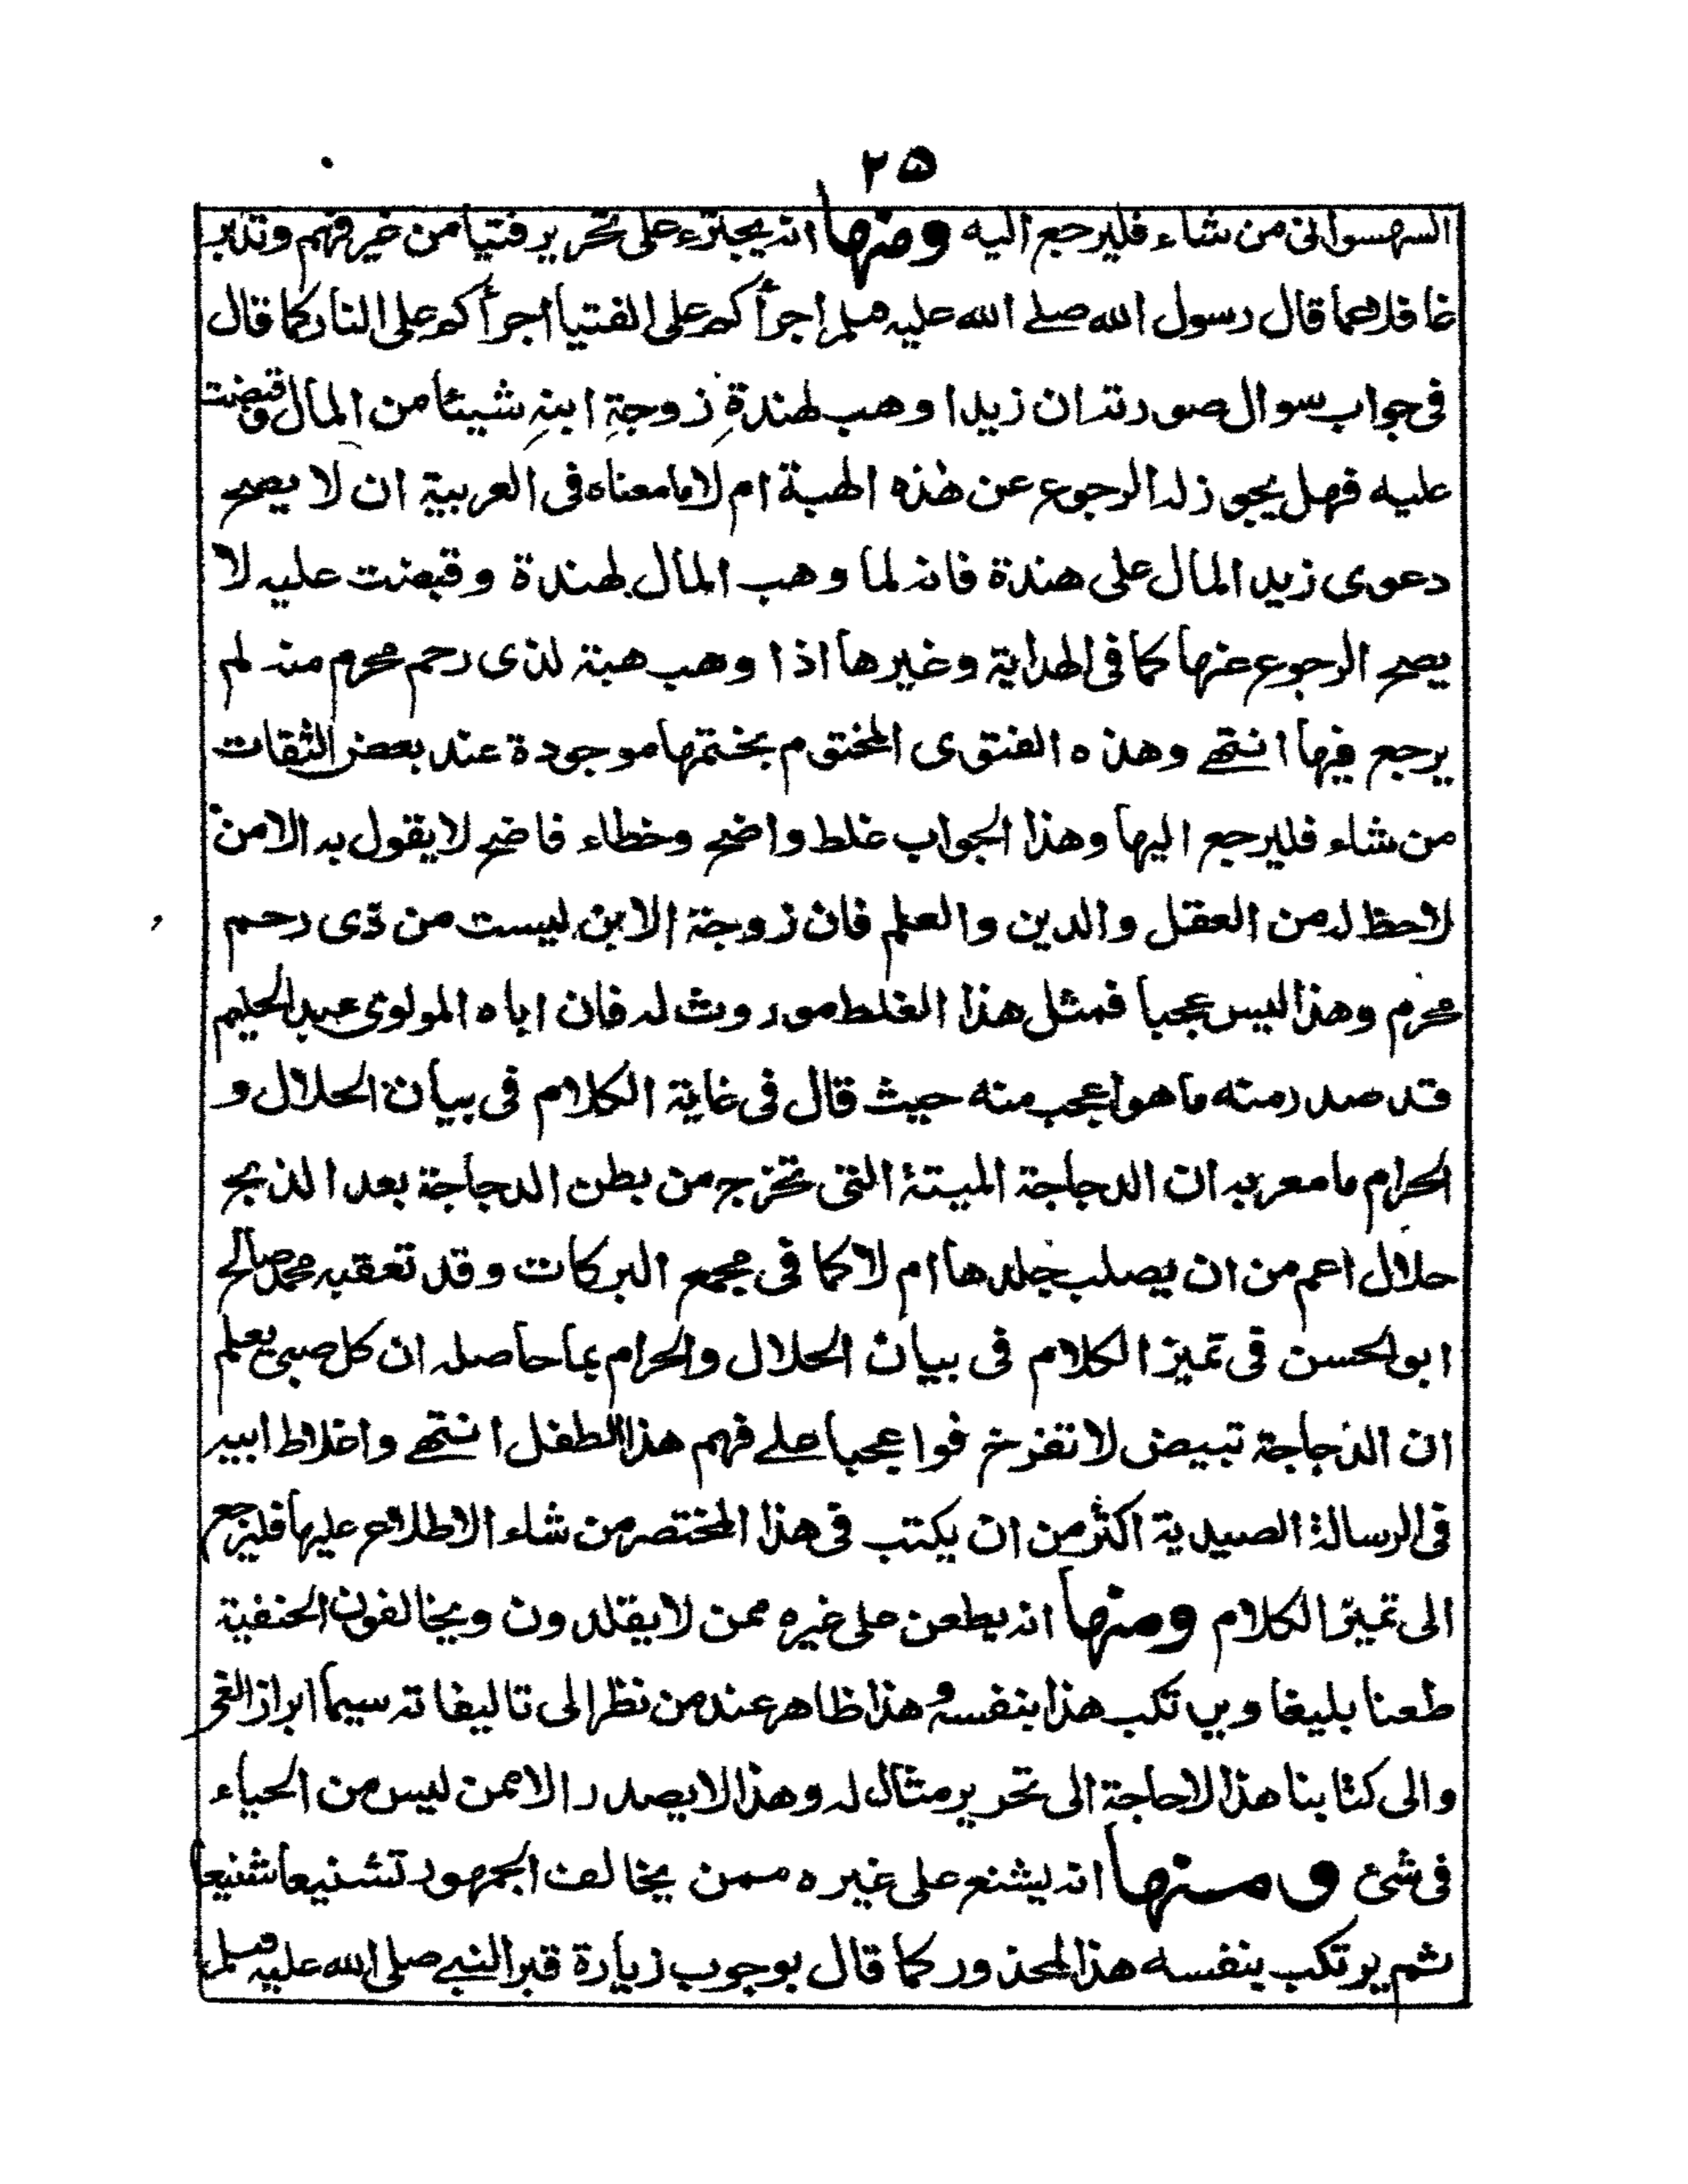 ٢٥
السهسوانى من شاء فليرجع اليه ومنها انه يجترء على تحرير فتيا من غير فهم وتدبر
غافلا عما قال رسول الله صلے الله عليه وسلم اجرأكم على الفتيا اجرأكم على النار كما قال
فى جواب سوال صورته ان زيدا وهب لهندة زوجة ابنه شيئا من المال وقبضت
عليه فهل يجوز له الرجوع عن هذه الهبة ام لا ما معناه فى العربية ان لا يصح
دعوى زيد المال على هندة فانه لما وهب المال لهندة وقبضت عليه لا
يصح الرجوع عنها كما فى الهداية وغيرها اذا وهب هبة لذى رحم محرم منه لم
يرجع فيها انتهے وهذه الفتوى المختوم بختمها موجودة عند بعض الثقات
من شاء فليرجع اليها وهذا الجواب غلط واضح وخطاء فاضح لا يقول به الا من
لا حظ له من العقل والدين والعلم فان زوجة الابن ليست من ذى رحم
محرم وهذا ليس عجبا فمثل هذا الغلط موروث له فان اباه المولوى عبد الحليم
قد صدر منه ما هو اعجب منه حيث قال فى غاية الكلام فى بيان الحلال و
الحرام ما معربه ان الدجاجة الميتة التى تخرج من بطن الدجاجة بعد الذبح
حلال اعم من ان يصلب جلدها ام لا كما فى مجمع البركات وقد تعقبه محمد صالح
ابو الحسن فى تميز الكلام فى بيان الحلال والحرام بما حاصله ان كل صبى يعلم
ان الدجاجة تبيض لا تفرخ فوا عجبا علے فهم هذا الطفل انتهے واغلاط ابيه
فى الرسالة الصيدية اكثر من ان يكتب فى هذا المختصر من شاء الاطلاع عليها فليرجع
الى تميز الكلام ومنها انه يطعن على غيره ممن لا يقلدون ويخالفون الحنفية
طعنا بليغا ويرتكب هذا بنفسه وهذا ظاهر عند من نظر الى تاليفاته سيما ابراز الغى
والى كتابنا هذا لا حاجة الى تحرير مثال له وهذا لا يصدر الا ممن ليس من الحياء
فى شئ ومنها انه يشنع على غيره ممن يخالف الجمهور تشنيعا شنيعا
ثم يرتكب بنفسه هذا المحذور كما قال بوجوب زيارة قبر النبے صلى الله عليه وسلم